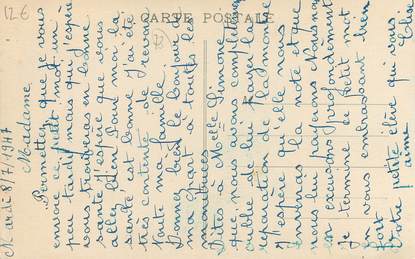 12€
CARTE POSTALE
Mardi 8/7/1947
Madame
Permettez que je vous
envoie ce petit mot un
peu tardif mais j'espère
vous trouverez en bonne
santé j'espère que vous
allez bien Pour moi la
santé est bonne j'ai été
très contente de revoir
toute ma famille
Donner bien le bonjour de
ma part à toutes les
maîtresses
Dites à Melle Simone
que nous avons complètement
oublié de lui payer la
réparation de la montre
J'espère qu'elle nous
enverras la note et que
nous lui payerons Nous nous
en excusons profondément
Je termine ce petit mot
en vous embrassant bien
fort
Votre petite élève qui vous
aime